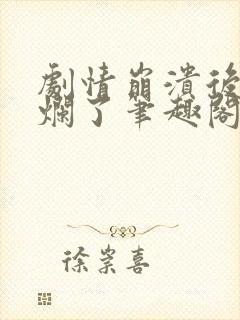 劇情崩潰後
爛了筆趣閣
徐崇喜